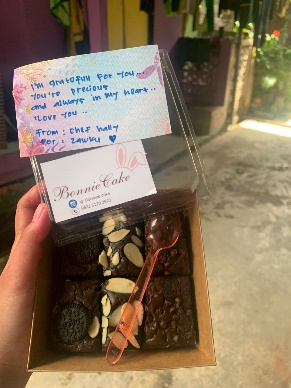 I'm gratefull for you
you're precious
and always in my heart..
I Love You..
From : chef hally
For : zawku
BonnieCake